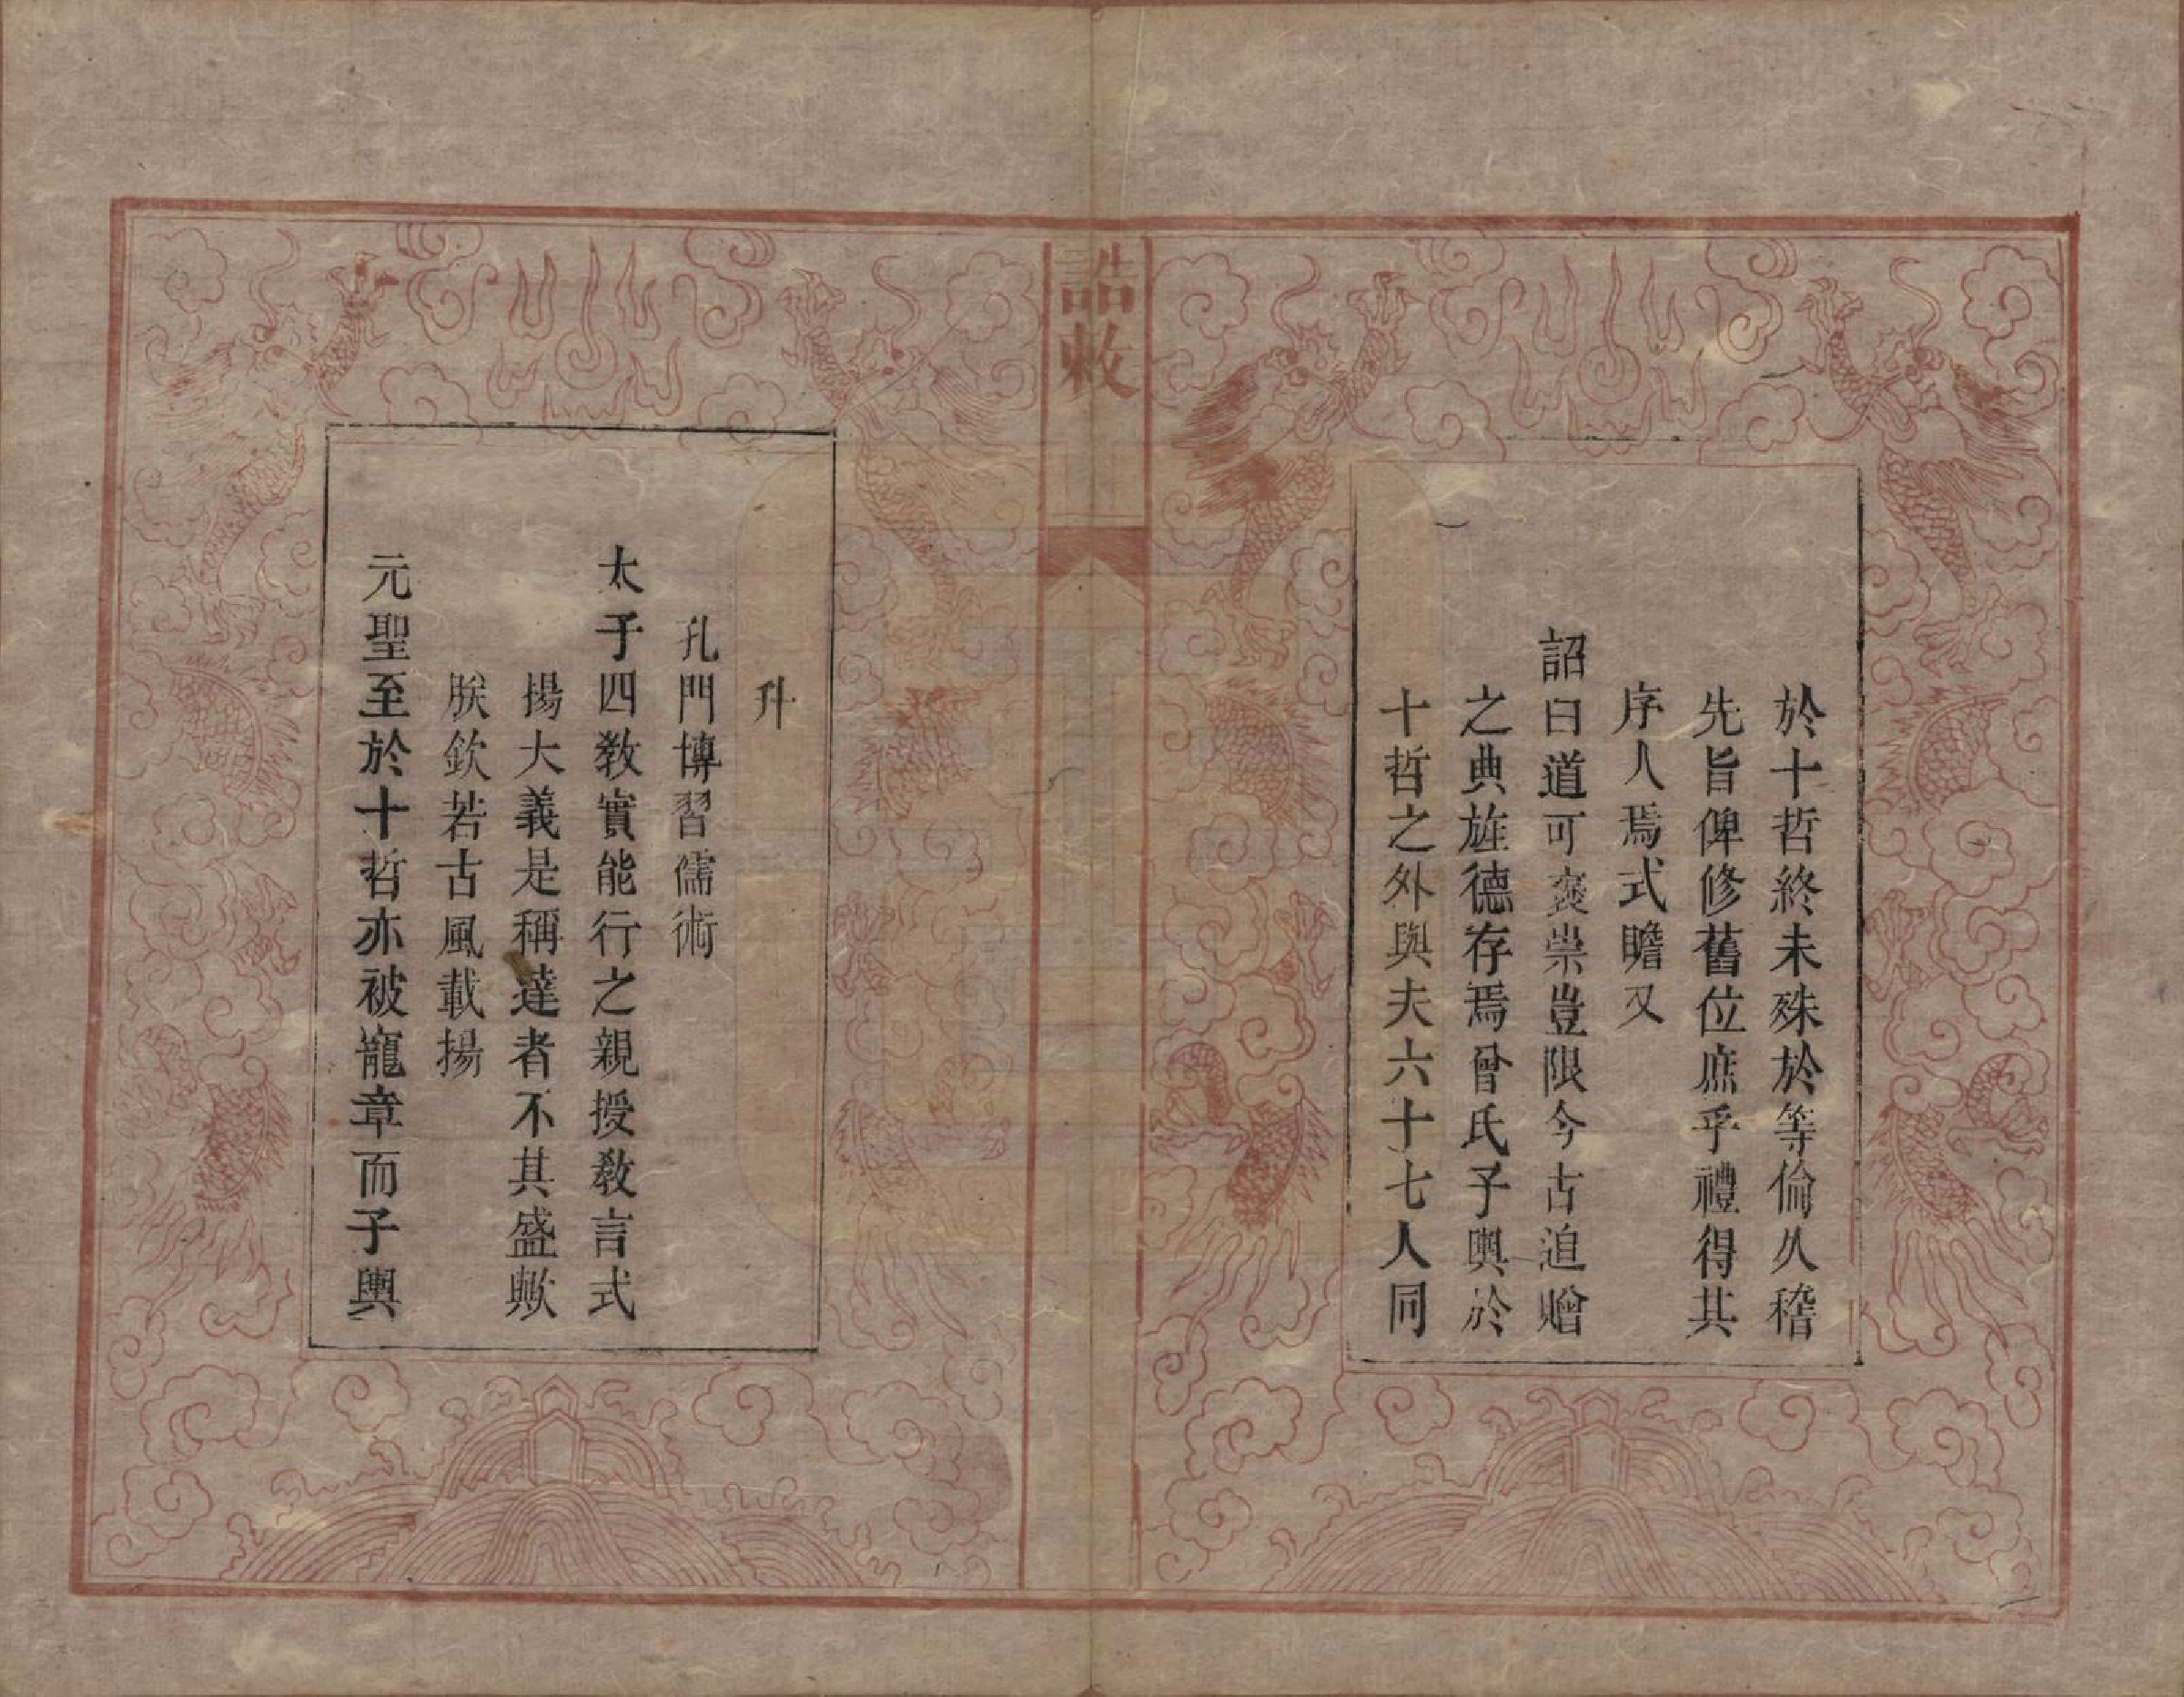 於十哲終未殊於等倫久稽
先旨俾修舊位庶乎禮得其
序人焉式瞻又
詔曰道可褒崇豈限今古追贈
之典旌德存焉曾氏子輿於
十哲之外與夫六十七人同
誥敕
升
孔門博習儒術
太子四教實能行之親授教言式
揚大義是稱達者不其盛歟
朕欽若古風載揚
元聖至於十哲亦被寵章而子輿